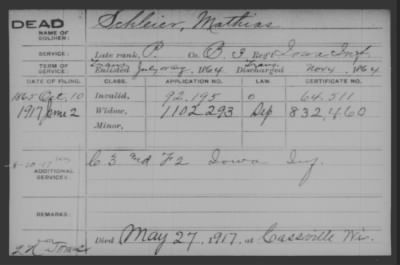 DEAD
NAME OF SOLDIER:
Schleier, Mathias
SERVICE:
Late rank, P. Co. B. 3 Reg't Iowa Inf.
TERM OF SERVICE:
Enlisted July 1864 Discharged Nov 4, 1864
DATE OF FILING. CLASS. APPLICATION NO. CERTIFICATE NO.
1865 Oct. 10 Invalid, 92.195 64.511
1917 June 2 Widow, 1102.293 832,460
Minor,
ADDITIONAL SERVICES:
C 3 and F 2 Iowa Inf.
REMARKS:
Died May 27, 1917, at Cassville Wis.